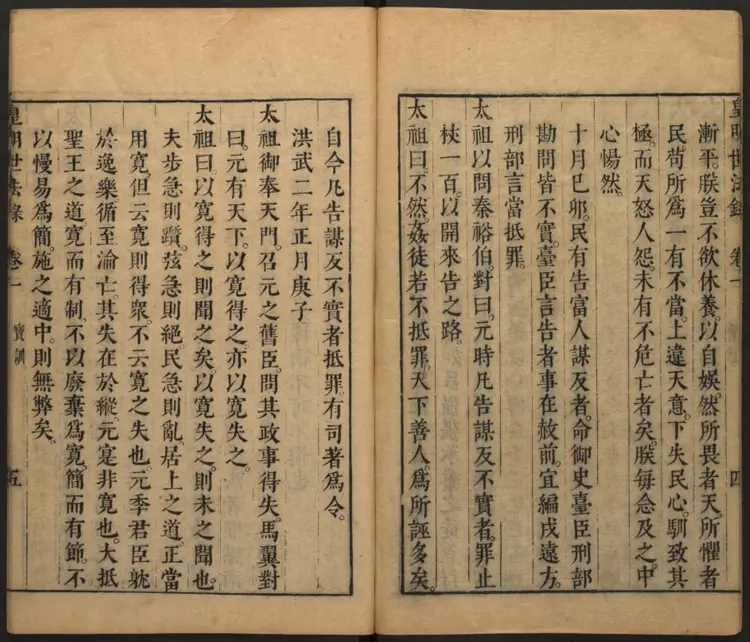 皇明世法錄 卷一 四
漸平。朕豈不欲休養。以自娛。然所畏者天。所懼者
民。苟所爲一有不當。上違天意。下失民心。馴致其
極。而天怒人怨。未有不危亡者矣。朕每念及之。中
心惕然。
十月巳卯。民有告富人謀反者。命御史臺臣刑部
勘問皆不實。臺臣言告者事在赦前。宜編戍遠方。
刑部言當抵罪。
太祖以問秦裕伯。對曰。元時凡告謀反不實者。罪止
杖一百。以開來告之路。
太祖曰。不然。姦徒若不抵罪。天下善人。爲所誣多矣。
自今凡告謀反不實者抵罪。有司著爲令。
洪武二年正月庚子
太祖御奉天門。召元之舊臣。問其政事得失。馬翼對
曰。元有天下。以寬得之。亦以寬失之。
太祖曰。以寬得之。則聞之矣。以寬失之。則未之聞也。
夫步急則躓。弦急則絕。民急則亂。居上之道。正當
用寬。但云寬則得衆。不云寬之失也。元季君臣。躭
於逸樂。循至淪亡。其失在於縱。元寔非寬也。大抵
聖王之道。寬而有制。不以廢棄爲寬。簡而有節。不
以慢易爲簡。施之適中。則無弊矣。
皇明世法錄 卷一 寶訓 五